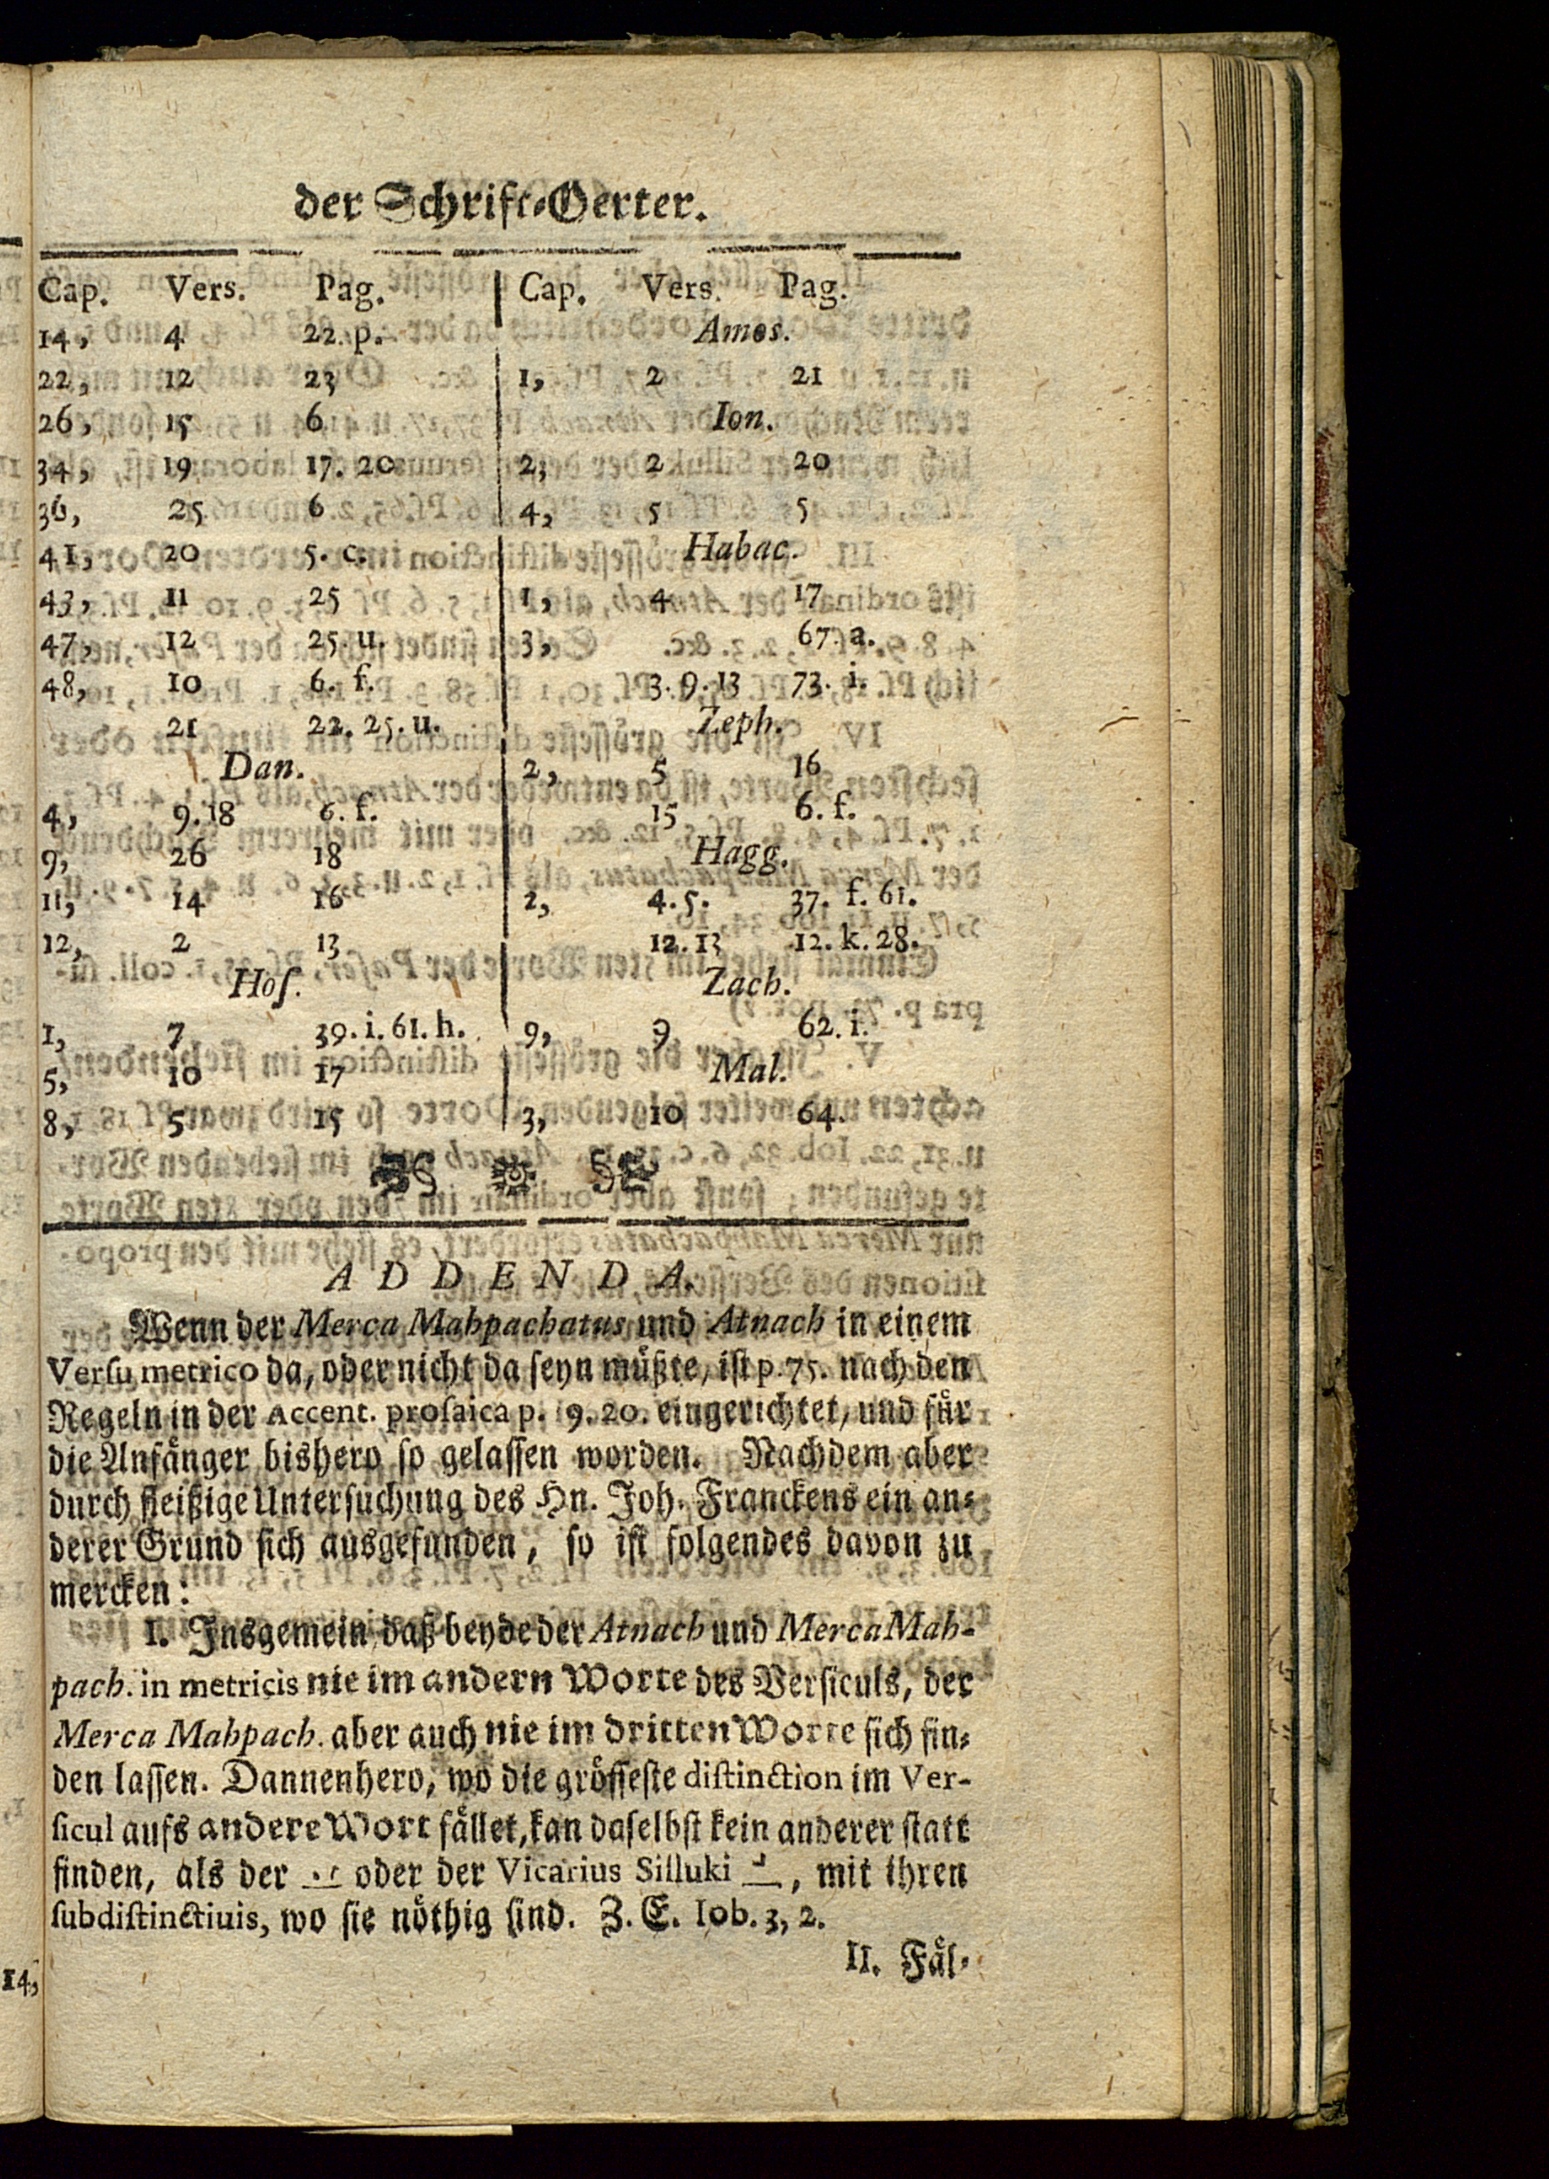 der Schrifft-Oerter.
Cap. Vers. Pag.
14, 4 22. p.
22, 12 23
26, 15 6
34, 19 17. 20
36, 25 6
41, 20 5. c.
43, 11 25
47, 12 25. u.
48, 10 6. f.
21 22. 25. u.
Dan.
4, 9. 18 6. f.
9, 26 18
11, 14 16
12, 2 13
Hoſ.
1, 7 39. i. 61. h.
5, 10 17
8, 5 15
Cap. Vers. Pag.
Amos.
1, 2 21
Ion.
2, 2 20
4, 5 5
Habac.
1, 4 17
3, 67. a.
3. 9. 13 73. i.
Zeph.
2, 5 16
15 6. f.
Hagg.
2, 4. 5. 37. f. 61.
12. 13 12. k. 28.
Zach.
9, 9 62. i.
Mal.
3, 10 64.
ADDENDA.
Wenn der Merca Mahpachatus und Atnach in einem
Verſu metrico da, oder nicht da ſeyn müßte, iſt p. 75. nach den
Regeln in der Accent. proſaica p. 19. 20. eingerichtet, und für
die Anfänger bishero ſo gelaſſen worden. Nachdem aber
durch fleißige Unterſuchung des Hn. Joh. Franckens ein an-
derer Grund ſich ausgefunden, ſo iſt folgendes davon zu
mercken:
I. Insgemein, daß beyde der Atnach und Merca Mah-
pach. in metricis nie im andern Worte des Verſiculs, der
Merca Mahpach. aber auch nie im dritten Worte ſich fin-
den laſſen. Dannenhero, wo die gröſſeſte diſtinction im Ver-
ſicul aufs andere Wort fället, kan daſelbſt kein anderer ſtatt
finden, als der oder der Vicarius Silluki , mit ihren
ſubdiſtinctiuis, wo ſie nöthig ſind. Z. E. Iob. 3, 2.
II. Fäl-
14,